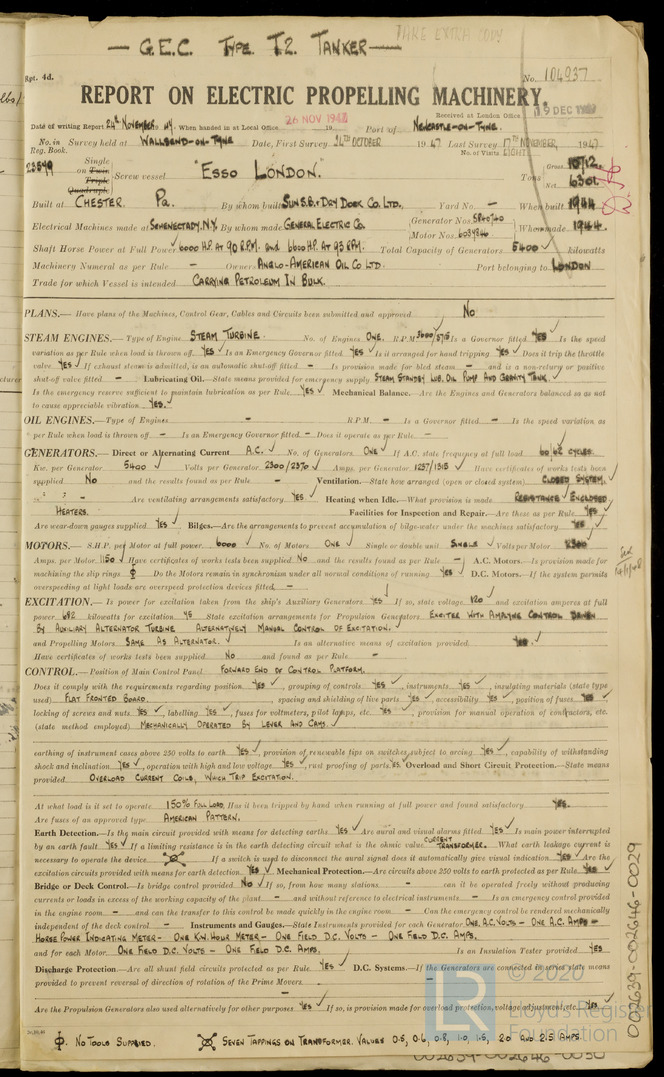 TAKE EXTRA COPY
— G.E.C. TYPE. T.2. TANKER —
Rpt. 4d.
No. 104937
REPORT ON ELECTRIC PROPELLING MACHINERY.
Received at London Office 19 DEC
Date of writing Report 24th NOVEMBER 1947. When handed in at Local Office 26 NOV 194 19 Port of NEWCASTLE-ON-TYNE.
No. in Reg. Book. Survey held at WALLSEND-ON-TYNE Date, First Survey 14TH OCTOBER 1947 Last Survey 17TH NOVEMBER, 1947
No. of Visits EIGHT
23579 Single on Twin Triple Quadruple Screw vessel "ESSO LONDON." Tons Gross 10712. Net 6301.
Built at CHESTER Pa. By whom built SUN S.B. & DRY DOCK CO. LTD. Yard No. — When built 1944
Electrical Machines made at SCHENECTADY. N.Y. By whom made GENERAL ELECTRIC CO. Generator Nos. 5840740 Motor Nos. When made 1944.
Shaft Horse Power at Full Power 6000 H.P. AT 90 R.P.M. and 6600 H.P. AT 93 R.P.M. Total Capacity of Generators 5400 kilowatts
Machinery Numeral as per Rule — Owners ANGLO-AMERICAN OIL CO LTD. Port belonging to LONDON
Trade for which Vessel is intended CARRYING PETROLEUM IN BULK.
PLANS.— Have plans of the Machines, Control Gear, Cables and Circuits been submitted and approved No
STEAM ENGINES.— Type of Engine STEAM TURBINE. No. of Engines ONE. R.P.M. 3600/3715 Is a Governor fitted YES Is the speed
variation as per Rule when load is thrown off YES Is an Emergency Governor fitted YES Is it arranged for hand tripping YES Does it trip the throttle
valve YES If exhaust steam is admitted, is an automatic shut-off fitted — Is provision made for bled steam — and is a non-return or positive
shut-off valve fitted — Lubricating Oil.—State means provided for emergency supply STEAM STANDBY LUB. OIL PUMP AND GRAVITY TANK.
Is the emergency reserve sufficient to maintain lubrication as per Rule YES Mechanical Balance.—Are the Engines and Generators balanced so as not
to cause appreciable vibration YES.
OIL ENGINES.— Type of Engine — R.P.M. — Is a Governor fitted — Is the speed variation as
per Rule when load is thrown off — Is an Emergency Governor fitted — Does it operate as per Rule —
GENERATORS.— Direct or Alternating Current A.C. No. of Generators ONE If A.C. state frequency at full load 60/62 CYCLES.
Kw. per Generator 5400 Volts per Generator 2300/2370 Amps. per Generator 1237/1315 Have certificates of works tests been
supplied No and the results found as per Rule — Ventilation.—State how arranged (open or closed system) CLOSED SYSTEM.
Are ventilating arrangements satisfactory YES Heating when Idle.—What provision is made RESISTANCE ENCLOSED
HEATERS. Facilities for Inspection and Repair.—Are these as per Rule YES
Are wear-down gauges supplied YES Bilges.—Are the arrangements to prevent accumulation of bilge-water under the machines satisfactory YES
MOTORS.— S.H.P. per Motor at full power 6000 No. of Motors ONE Single or double unit SINGLE Volts per Motor 2300
Amps. per Motor 1150 Have certificates of works tests been supplied No and the results found as per Rule — A.C. Motors.—Is provision made for
machining the slip rings ϕ Do the Motors remain in synchronism under all normal conditions of running YES D.C. Motors.—If the system permits
overspeeding at light loads are overspeed protection devices fitted —
EXCITATION.— Is power for excitation taken from the ship's Auxiliary Generators YES If so, state voltage 120 and excitation amperes at full
power 682 kilowatts for excitation 45 State excitation arrangements for Propulsion Generators EXCITER WITH AMPLIDYNE CONTROL DRIVEN
BY AUXILIARY ALTERNATOR TURBINE ALTERNATIVELY MANUAL CONTROL OF EXCITATION.
and Propelling Motors SAME AS ALTERNATOR. Is an alternative means of excitation provided YES.
Have certificates of works tests been supplied No and found as per Rule —
CONTROL.—Position of Main Control Panel FORWARD END OF CONTROL PLATFORM.
Does it comply with the requirements regarding position YES, grouping of controls YES, instruments YES, insulating materials (state type
used) FLAT FRONTED BOARD, spacing and shielding of live parts YES, accessibility YES, position of fuses YES
locking of screws and nuts YES, labelling YES, fuses for voltmeters, pilot lamps, etc. YES, provision for manual operation of contactors, etc.
(state method employed) MECHANICALLY OPERATED BY LEVER AND CAMS.
earthing of instrument cases above 250 volts to earth YES, provision of renewable tips on switches subject to arcing YES, capability of withstanding
shock and inclination YES, operation with high and low voltage YES, rust proofing of parts YES. Overload and Short Circuit Protection.—State means
provided OVERLOAD CURRENT COILS, WHICH TRIP EXCITATION.
At what load is it set to operate 150% FULL LOAD. Has it been tripped by hand when running at full power and found satisfactory YES.
Are fuses of an approved type AMERICAN PATTERN.
Earth Detection.—Is the main circuit provided with means for detecting earths YES Are aural and visual alarms fitted YES Is main power interrupted
by an earth fault YES If a limiting resistance is in the earth detecting circuit what is the ohmic value CURRENT TRANSFORMER. What earth leakage current is
necessary to operate the device If a switch is used to disconnect the aural signal does it automatically give visual indication YES Are the
excitation circuits provided with means for earth detection YES Mechanical Protection.—Are circuits above 250 volts to earth protected as per Rule YES
Bridge or Deck Control.—Is bridge control provided No If so, from how many stations — can it be operated freely without producing
currents or loads in excess of the working capacity of the plant — and without reference to electrical instruments — Is an emergency control provided
in the engine room — and can the transfer to this control be made quickly in the engine room — Can the emergency control be rendered mechanically
independent of the deck control — Instruments and Gauges.—State Instruments provided for each Generator ONE. A.C. VOLTS — ONE A.C. AMPS —
HORSE POWER INDICATING METER — ONE K.W. HOUR METER — ONE FIELD D.C. VOLTS — ONE FIELD D.C. AMPS.
and for each Motor ONE FIELD D.C. VOLTS — ONE FIELD D.C. AMPS. Is an Insulation Tester provided YES
Discharge Protection.—Are all shunt field circuits protected as per Rule YES D.C. Systems.—If the Generators are connected in series state means
provided to prevent reversal of direction of rotation of the Prime Movers. —
Are the Propulsion Generators also used alternatively for other purposes YES If so, is provision made for overload protection, voltage adjustment, etc. YES
ϕ. NO TOOLS SUPPLIED. SEVEN TAPPINGS ON TRANSFORMER. VALUES 0·5, 0·6, 0·8, 1·0, 1·5, 2·0 AND 2·5 AMPS.
002639-002646-0029
© 2020
LR
Lloyd's Register
Foundation